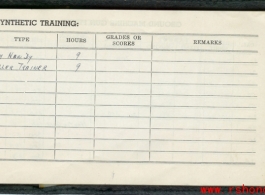 SYNTHETIC TRAINING:
TYPE HOURS GRADES OR SCORES REMARKS
9
TRAINER 9